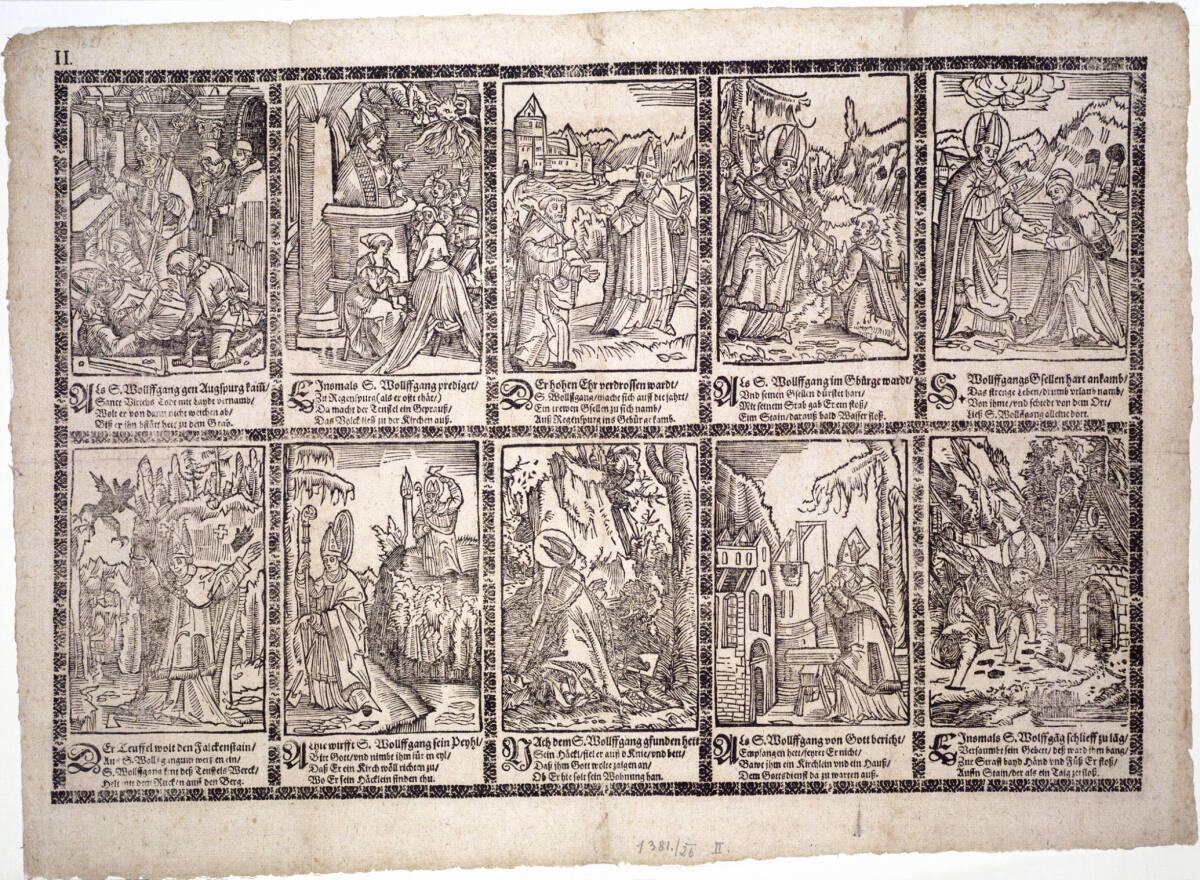 II.
ALs S. Wolffgang gen Augspurg kam/
Sanct Vlrichs Todt mit Laydt vernamb/
Wolt er von dann nicht weichen ab/
Biß er ihn bstätt hett zu dem Grab.
EInsmals S. Wolffgang prediget/
Zu Regenspurg (als er offt thät/)
Da macht der Teuffel ein Geprauß/
Das Volck lieff zu der Kirchen auß.
DEr hohen Ehr verdrossen wardt/
S. Wolffgang/macht sich auff die fahrt/
Ein trewen Gsellen zu sich namb/
Auß Regenspurg ins Gebürg kamb.
ALs S. Wolffgang im Gbürge wardt/
Vnd seinen Gsellen dürstet hart/
Mit seinem Stab gab Er em stoß/
Eim Stain/darauß bald Wasser floß.
S. WolffgangsGsellen hart ankamb/
Das strenge Leben/drumb vrlaub namb/
Von ihme/vnd schiedt von dem Ort/
Ließ S. Wolffgang alleine dort.
DEr Teuffel wolt den Falckenstain/
Auff S. Wolffgangum werffen ein/
S. Wolffgang hindt deß Teuffels Werck/
Helt mit dem Rucken auff den Berg.
Allhie wirfft S. Wolffgang sein Peyhl/
Bitt Gott/vnd nimbt ihm für in eyl/
Daß Er ein Kirch wöll richten zu/
Wo Er sein Häcklein finden thu.
NAch dem S. Wolffgang gfunden hett
Sein Häckl/fiel er auff d Knie/vnd bett/
Daß ihm Gott wolte zaigen an/
Ob Er hie solt sein Wohnung han.
ALs S. Wolffgang von Gott bericht/
Empfangen hett/feyret Er nicht/
Bawt ihm ein Kirchlein vnd ein Hauß/
Dem Gottsdienst da zu warten auß.
EInsmals S. Wolffgäg schlieff zu läg/
Versaumbt sein Gebett/deß ward ihm bang/
Zur Straff bayd Händ vnd Füß Er stoß/
Auffn Stain/der als ein Taig zerfloß.
1381./26 II.